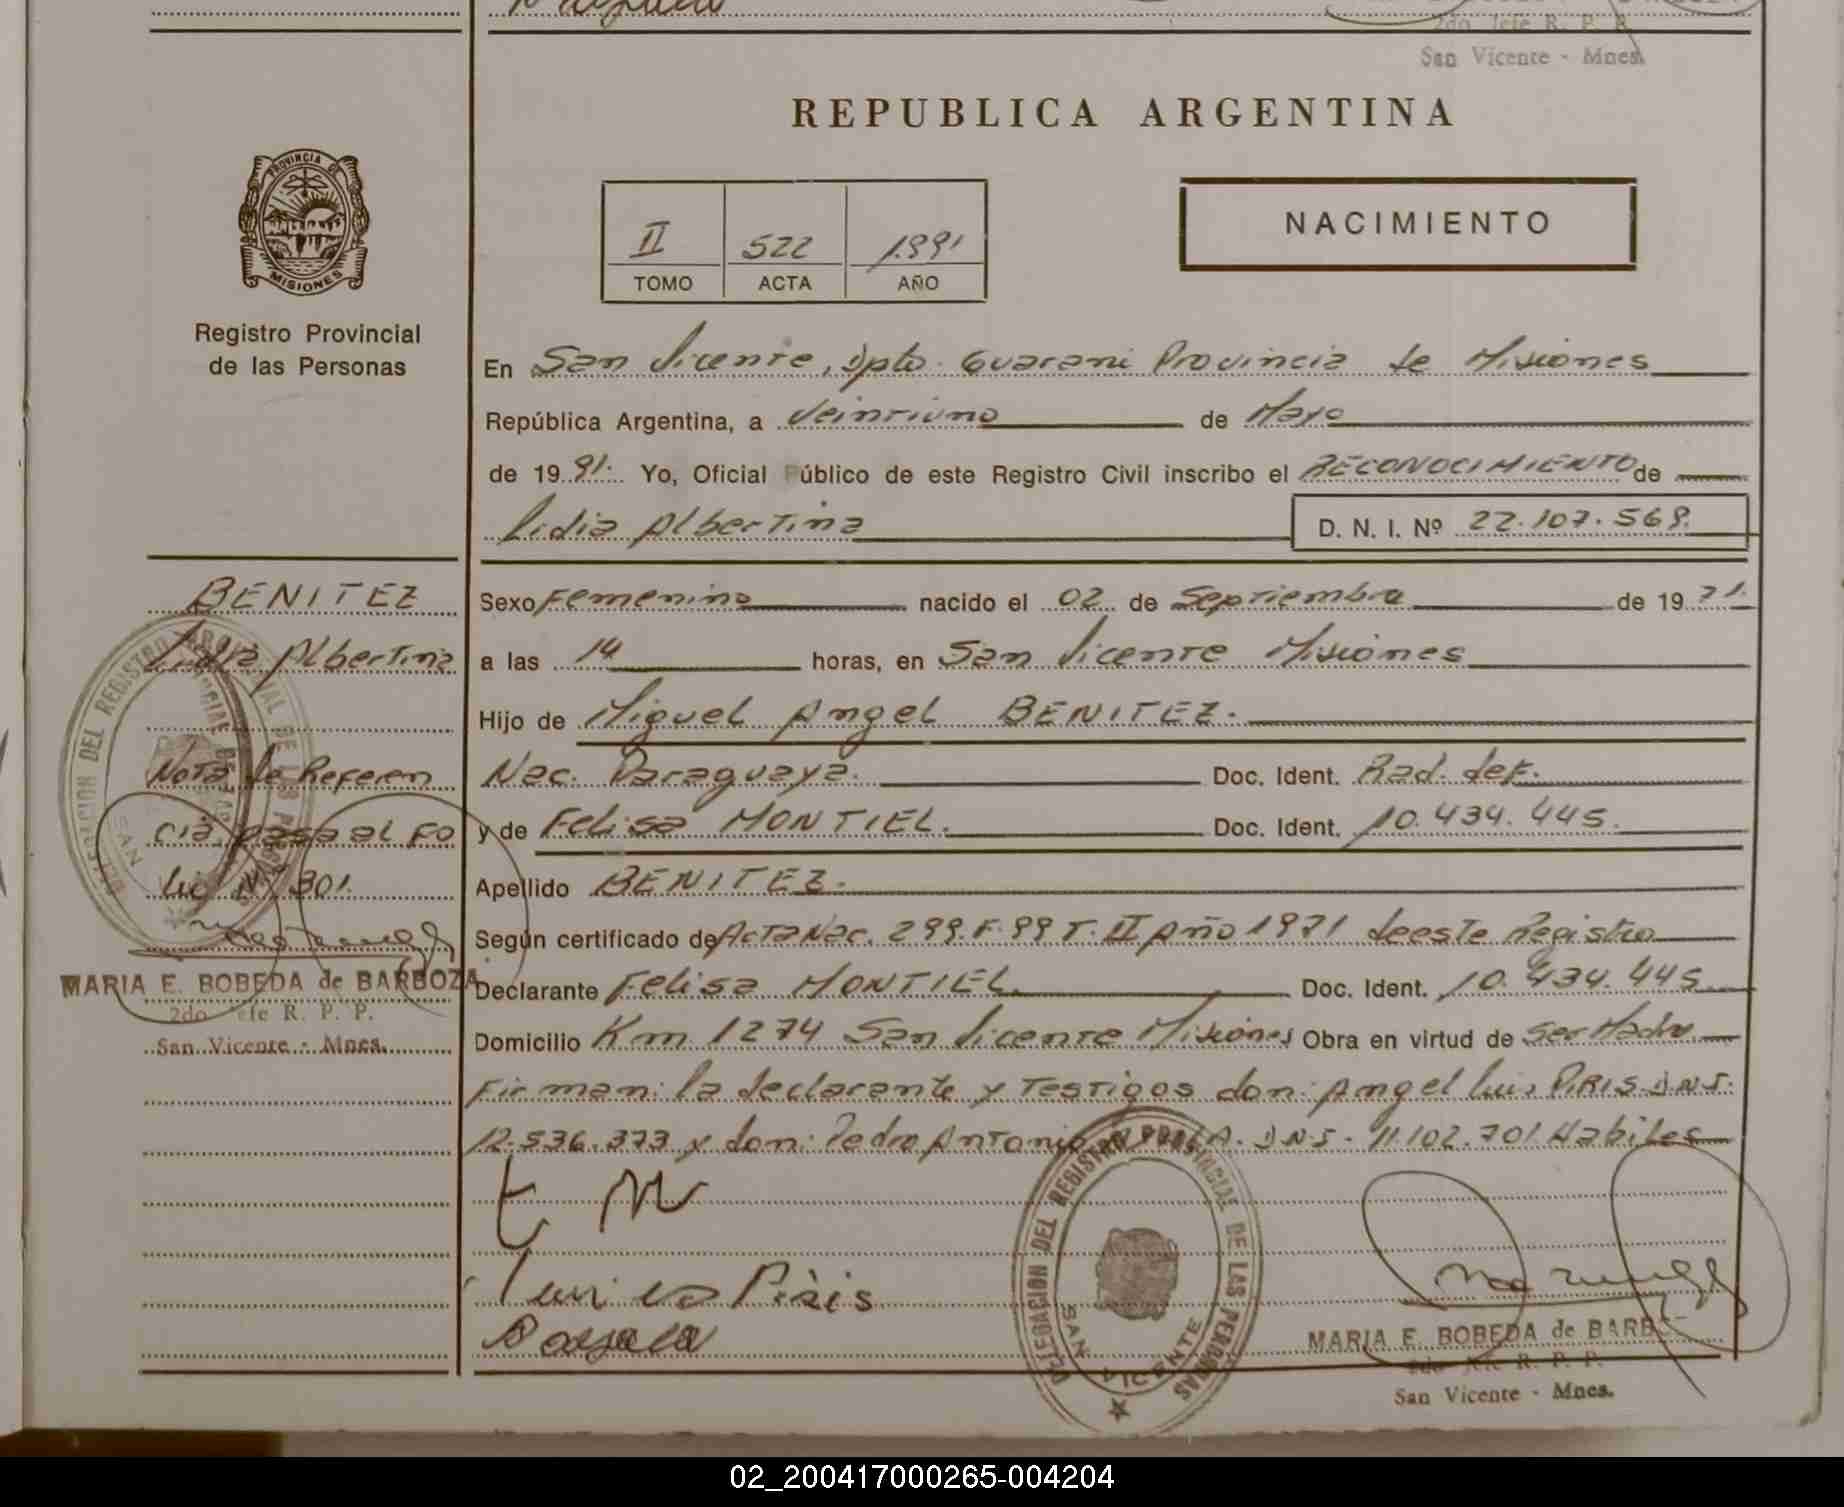 2do Jefe R. P. P.
San Vicente - Mnes.
REPUBLICA ARGENTINA
PROVINCIA DE
MISIONES
Registro Provincial
de las Personas
II 522 1.991
TOMO ACTA AÑO
NACIMIENTO
En San Vicente, Dpto. Guarani Provincia de Misiones
República Argentina, a Veintiuno de Mayo
de 19 91. Yo, Oficial Público de este Registro Civil inscribo el RECONOCIMIENTO de
Lidia Albertina D. N. I. Nº 22.107.568.
BENITEZ
Lidia Albertina
Nota de Referen
cia, pasa al Fo
lio Nº 301.
MARIA E. BOBEDA de BARBOZA
2do Jefe R. P. P.
San Vicente - Mnes.
Sexo Femenino nacido el 02 de Septiembre de 19 71.
a las 14 horas, en San Vicente Misiones
Hijo de Miguel Angel BENITEZ.
Nac. Paraguaya. Doc. Ident. Rad. def.
y de Felisa MONTIEL. Doc. Ident. 10.434.445.
Apellido BENITEZ.
Según certificado de Acta Nac. 299. F. 99 T. II Año 1971 de este Registro
Declarante Felisa MONTIEL. Doc. Ident. 10.434.445.
Domicilio Km 1274 San Vicente Misiones Obra en virtud de Ser Madre
Firman: la declarante y Testigos don: Angel Luis PIRIS D.N.I.
12.536.373 y don: Pedro Antonio D.N.I. 11.102.701 Habiles
DELEGACION DEL REGISTRO PROVINCIAL DE LAS PERSONAS
SAN VICENTE
Piris
MARIA E. BOBEDA de BARBOZA
2do Jefe R. P. P.
San Vicente - Mnes.
02_200417000265-004204